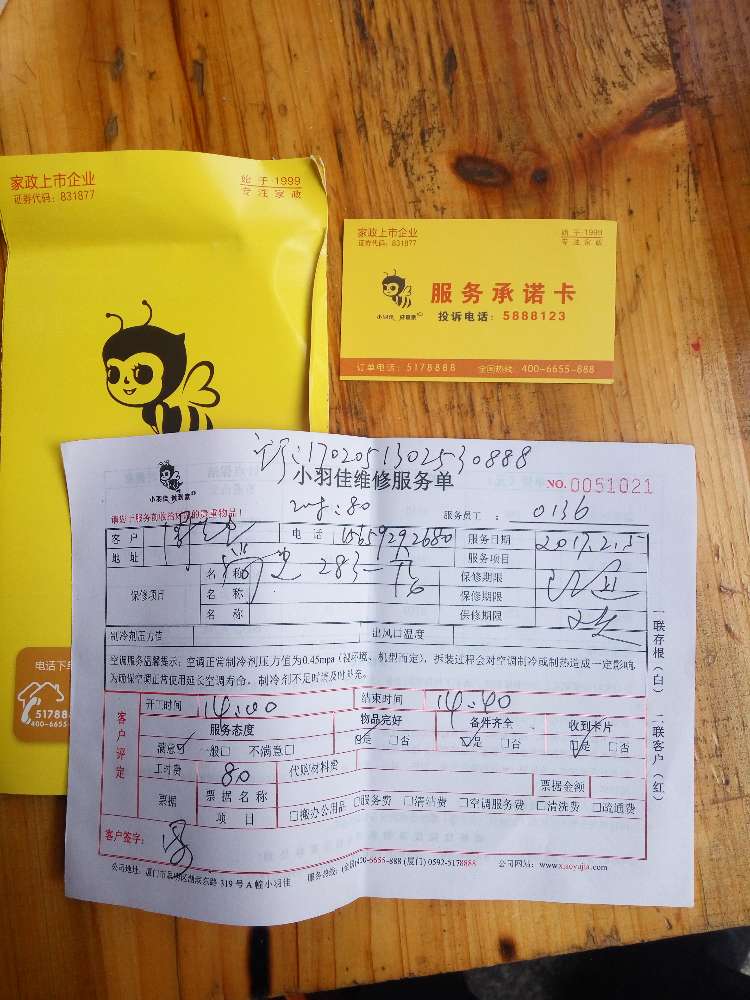 家政上市企业
证券代码：831877
始于1999
专注家政
电话下单
51788
400-6655
家政上市企业
证券代码：831877
始于1999
专注家政
服务承诺卡
投诉电话：5888123
小羽佳 好管家
订单电话：5178888
全国热线：400-6655-888
订:1702051302530888
小羽佳维修服务单
NO.0051021
小羽佳 好管家
:80
服务员工：0136
客户
电话
服务日期 2017.2.5
地址
服务项目
保修项目
名称
保修期限
名称
保修期限
名称
保修期限
制冷剂压力值
出风口温度
空调服务温馨提示：空调正常制冷剂压力值为0.45mpa（视环境、机型而定），拆装过程会对空调制冷或制热造成一定影响
为确保空调正常使用延长空调寿命，制冷剂不足时请及时补充。
一联存根（白）
二联客户（红）
客户评定
开工时间 14:00
结束时间 14:40
服务态度
物品完好
备件齐全
收到卡片
满意 一般□ 不满意□
是 □否
是 □否
是 □否
工时费 80
代购材料费
票据
票据名称
票据金额
项目
□搬办公用品 □服务费 □清洁费 □空调服务费 □清洗费 □疏通费
客户签字：
服务热线：(全国)400-6655-888 (厦门) 0592-5178888
公司网站：www.xiaoyujia.com